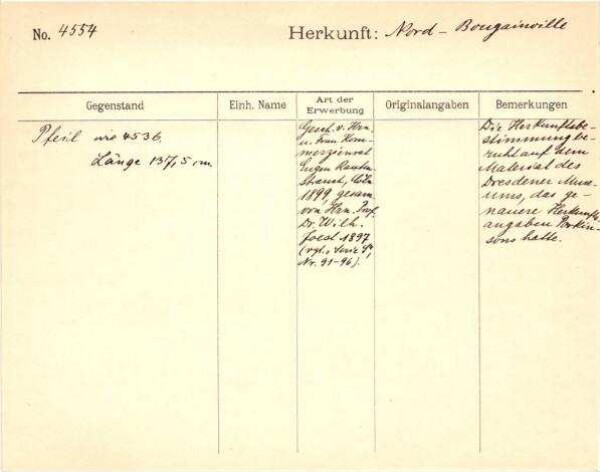 No. 4554
Herkunft: Nord-Bougainville
Gegenstand
Einh. Name
Art der
Erwerbung
Originalangaben
Bemerkungen
Pfeil wie 4536.
Länge 137,5 cm
Gesch. v. Hrn.
u. Frau Kom-
merzienrat
Eugen Rauten-
strauch, Cöln
1899, gesam.
von Hrn. Prof.
Dr. Wilh.
Joest 1897
(vgl. Serie
Nr. 91-96).
Die Herkunftsbe-
stimmung be-
ruht auf dem
Material des
Dresdener Muse-
ums, das ge-
nauere Herkunfts-
angaben Parkin-
sons hatte.